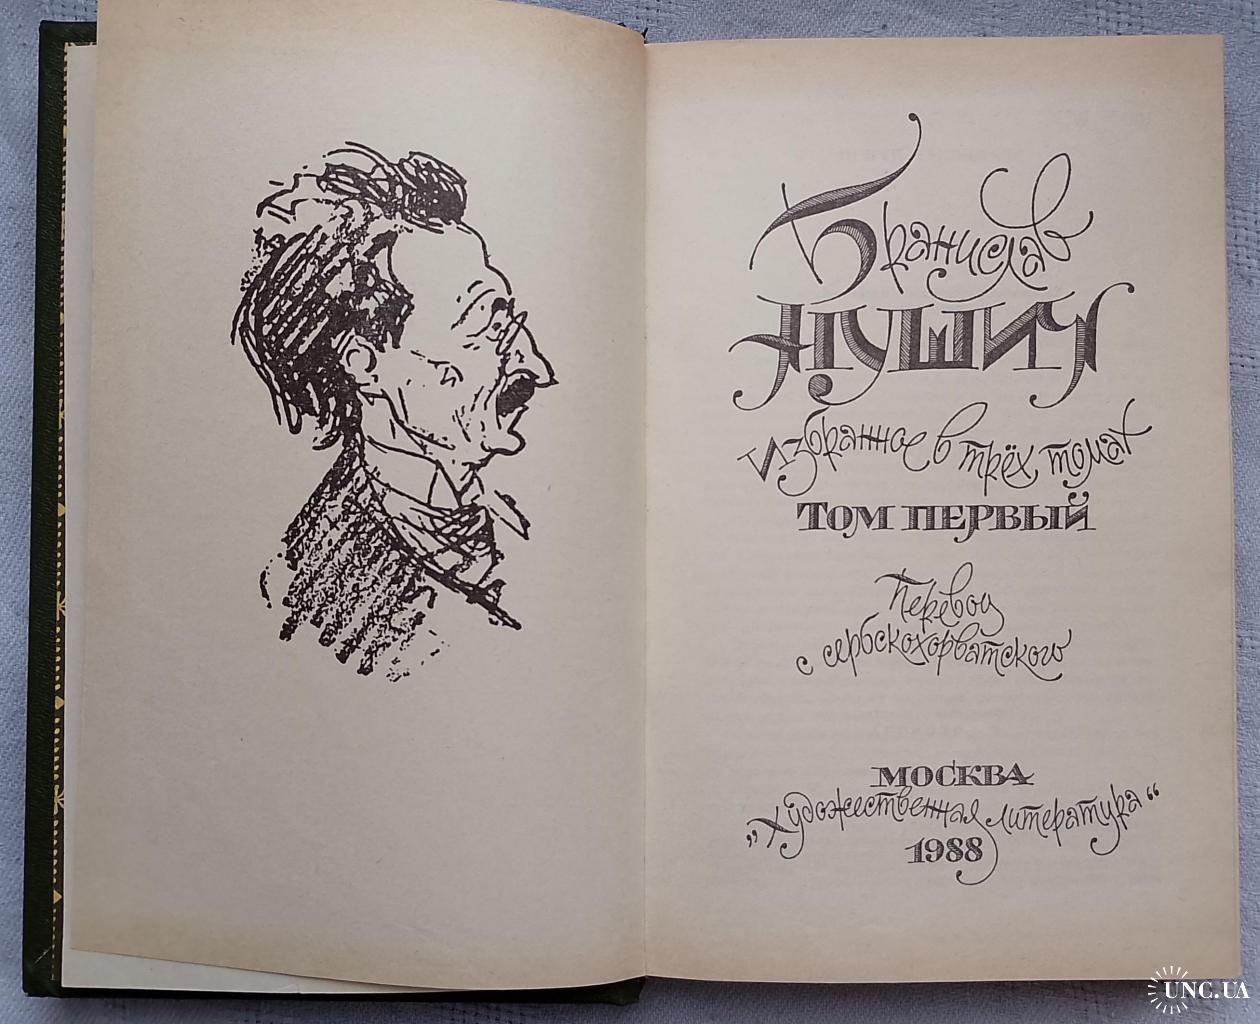 Бранислав
Нушич
Избранное в трёх томах
Том первый
Перевод
с сербскохорватского
Москва
„Художественная литература“
1988
UNC.UA